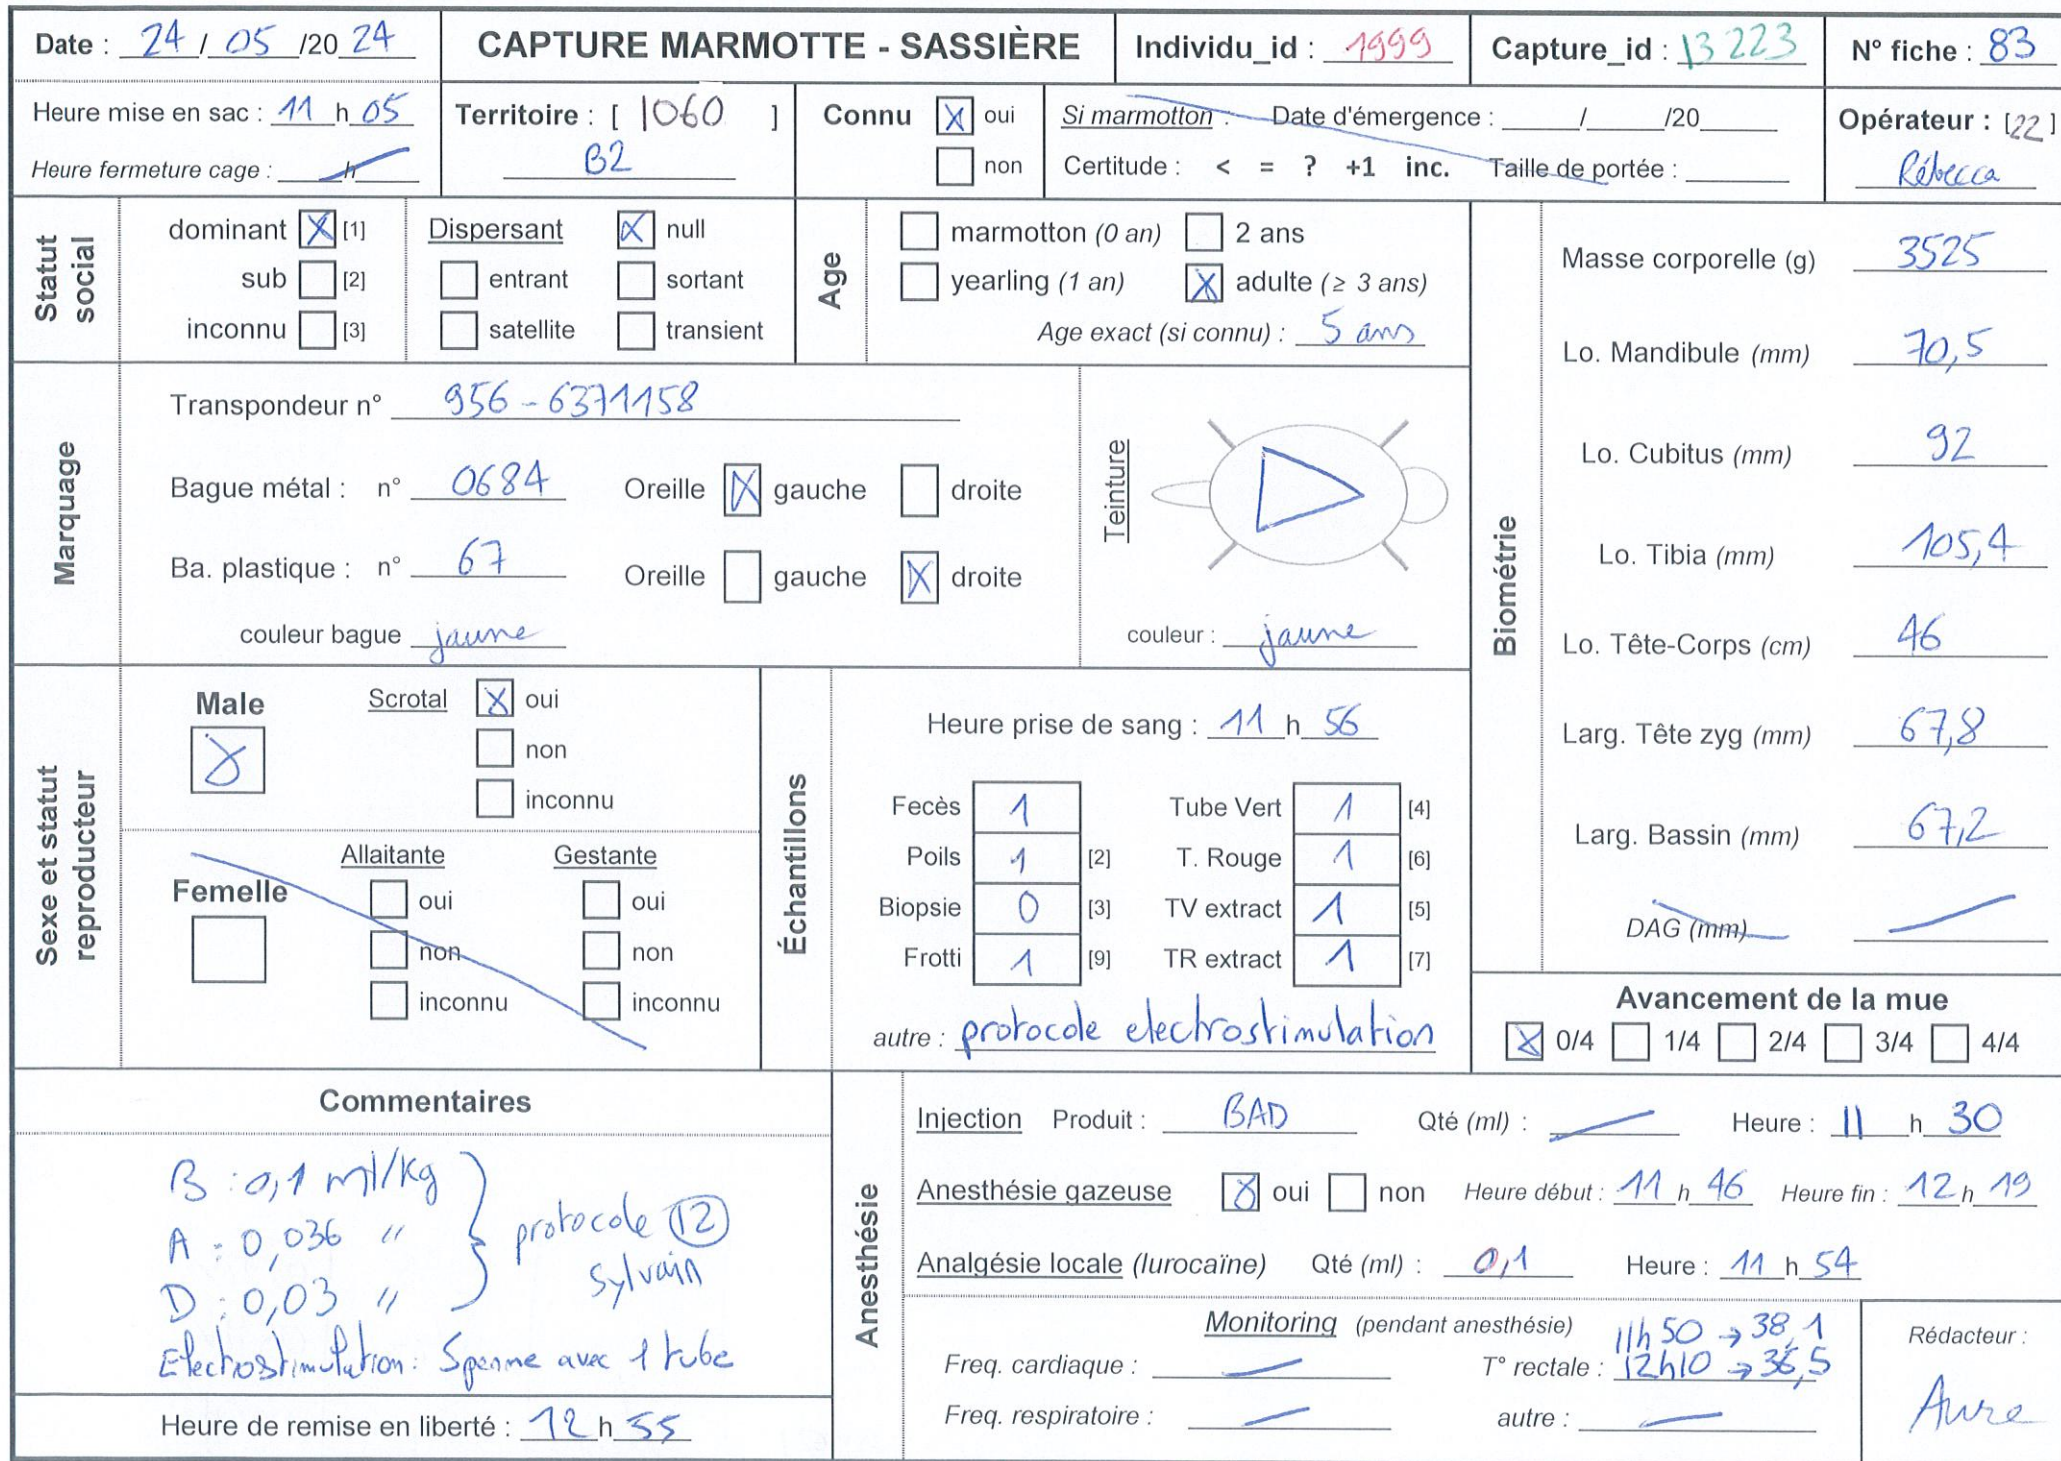 Date : 24 / 05 /20 24
CAPTURE MARMOTTE - SASSIÈRE
Individu_id : 1999
Capture_id : 13223
N° fiche : 83
Heure mise en sac : 11 h 05
Heure fermeture cage : h
Territoire : [ 1060 ]
B2
Connu X oui
non
Si marmotton : Date d'émergence : / /20
Certitude : < = ? +1 inc. Taille de portée :
Opérateur : [22]
Rébecca
Statut social
dominant X [1]
sub [2]
inconnu [3]
Dispersant X null
entrant sortant
satellite transient
Age
marmotton (0 an) 2 ans
yearling (1 an) X adulte (≥ 3 ans)
Age exact (si connu) : 5 ans
Marquage
Transpondeur n° 956-6371158
Bague métal : n° 0684 Oreille X gauche droite
Ba. plastique : n° 67 Oreille gauche X droite
couleur bague jaune
Teinture
couleur : jaune
Biométrie
Masse corporelle (g) 3525
Lo. Mandibule (mm) 70,5
Lo. Cubitus (mm) 92
Lo. Tibia (mm) 105,4
Lo. Tête-Corps (cm) 46
Larg. Tête zyg (mm) 67,8
Larg. Bassin (mm) 67,2
DAG (mm)
Sexe et statut reproducteur
Male X
Scrotal X oui
non
inconnu
Femelle
Allaitante Gestante
oui oui
non non
inconnu inconnu
Échantillons
Heure prise de sang : 11 h 56
Fecès 1 Tube Vert 1 [4]
Poils 1 [2] T. Rouge 1 [6]
Biopsie 0 [3] TV extract 1 [5]
Frotti 1 [9] TR extract 1 [7]
autre : protocole electrostimulation
Avancement de la mue
X 0/4 1/4 2/4 3/4 4/4
Commentaires
B : 0,1 ml/kg
A : 0,036 "
D : 0,03 "
protocole 12
Sylvain
Electrostimulation : Sperme avec 1 tube
Heure de remise en liberté : 12 h 55
Anesthésie
Injection Produit : BAD Qté (ml) : Heure : 11 h 30
Anesthésie gazeuse X oui non Heure début : 11 h 46 Heure fin : 12 h 19
Analgésie locale (lurocaïne) Qté (ml) : 0,1 Heure : 11 h 54
Monitoring (pendant anesthésie)
Freq. cardiaque :
Freq. respiratoire :
11h50 → 38,1
T° rectale : 12h10 → 36,5
autre :
Rédacteur :
Aure